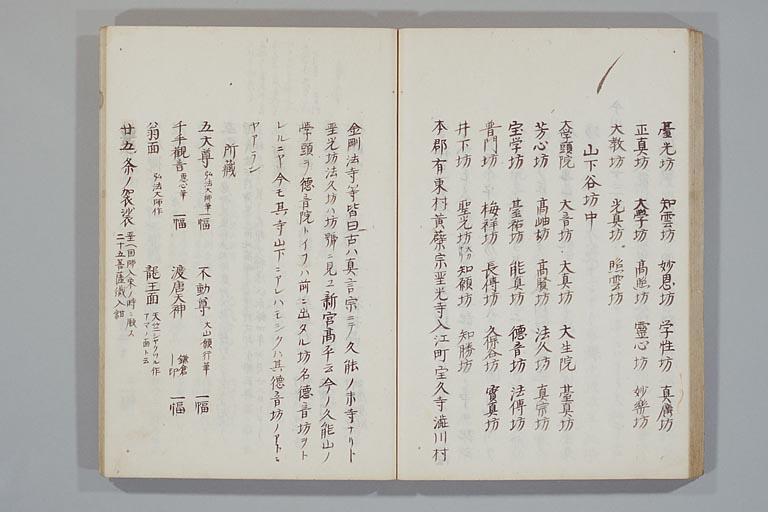 臺光坊 知雲坊 妙恩坊 学性坊 真廣坊
正真坊 大學坊 高照坊 霊心坊 妙樂坊
大教坊 光真坊 照雲坊
山下谷坊中
学頭院 大音坊 大真坊 大生院 臺真坊
芳心坊 高岫坊 高賢坊 法久坊 真宗坊
宝学坊 臺祐坊 能真坊 德音坊 法傳坊
普門坊 梅祥坊 長傳坊 久保谷坊 實真坊
井下坊 聖光坊 知額坊 知勝坊
本郡有東村黄檗宗聖光寺入江町宝久寺澁川村
金剛法寺等皆曰古ハ真言宗ニテ久能ノ末寺ナリト
聖光坊法久坊ハ坊號ニ見ユ新宮高平云今ノ久能山ノ
学頭ヲ德音院トイフハ前ニ出タル坊名德音坊ヲト
レルニヤ今モ其寺山下ニアレハモシクハ其德音坊ノアトニ
ヤアラン
所蔵
五大尊 弘法大師筆 一幅 不動尊 大山願行筆 一幅
千手觀音 恵心筆 一幅 渡唐天神 鎌倉 一印 一幅
翁面 弘法大師作 龍王面 作 アマノ面ト云
廿五条ノ袈裟 聖一国師入宋ノ時ニ 二十五菩薩織入紺